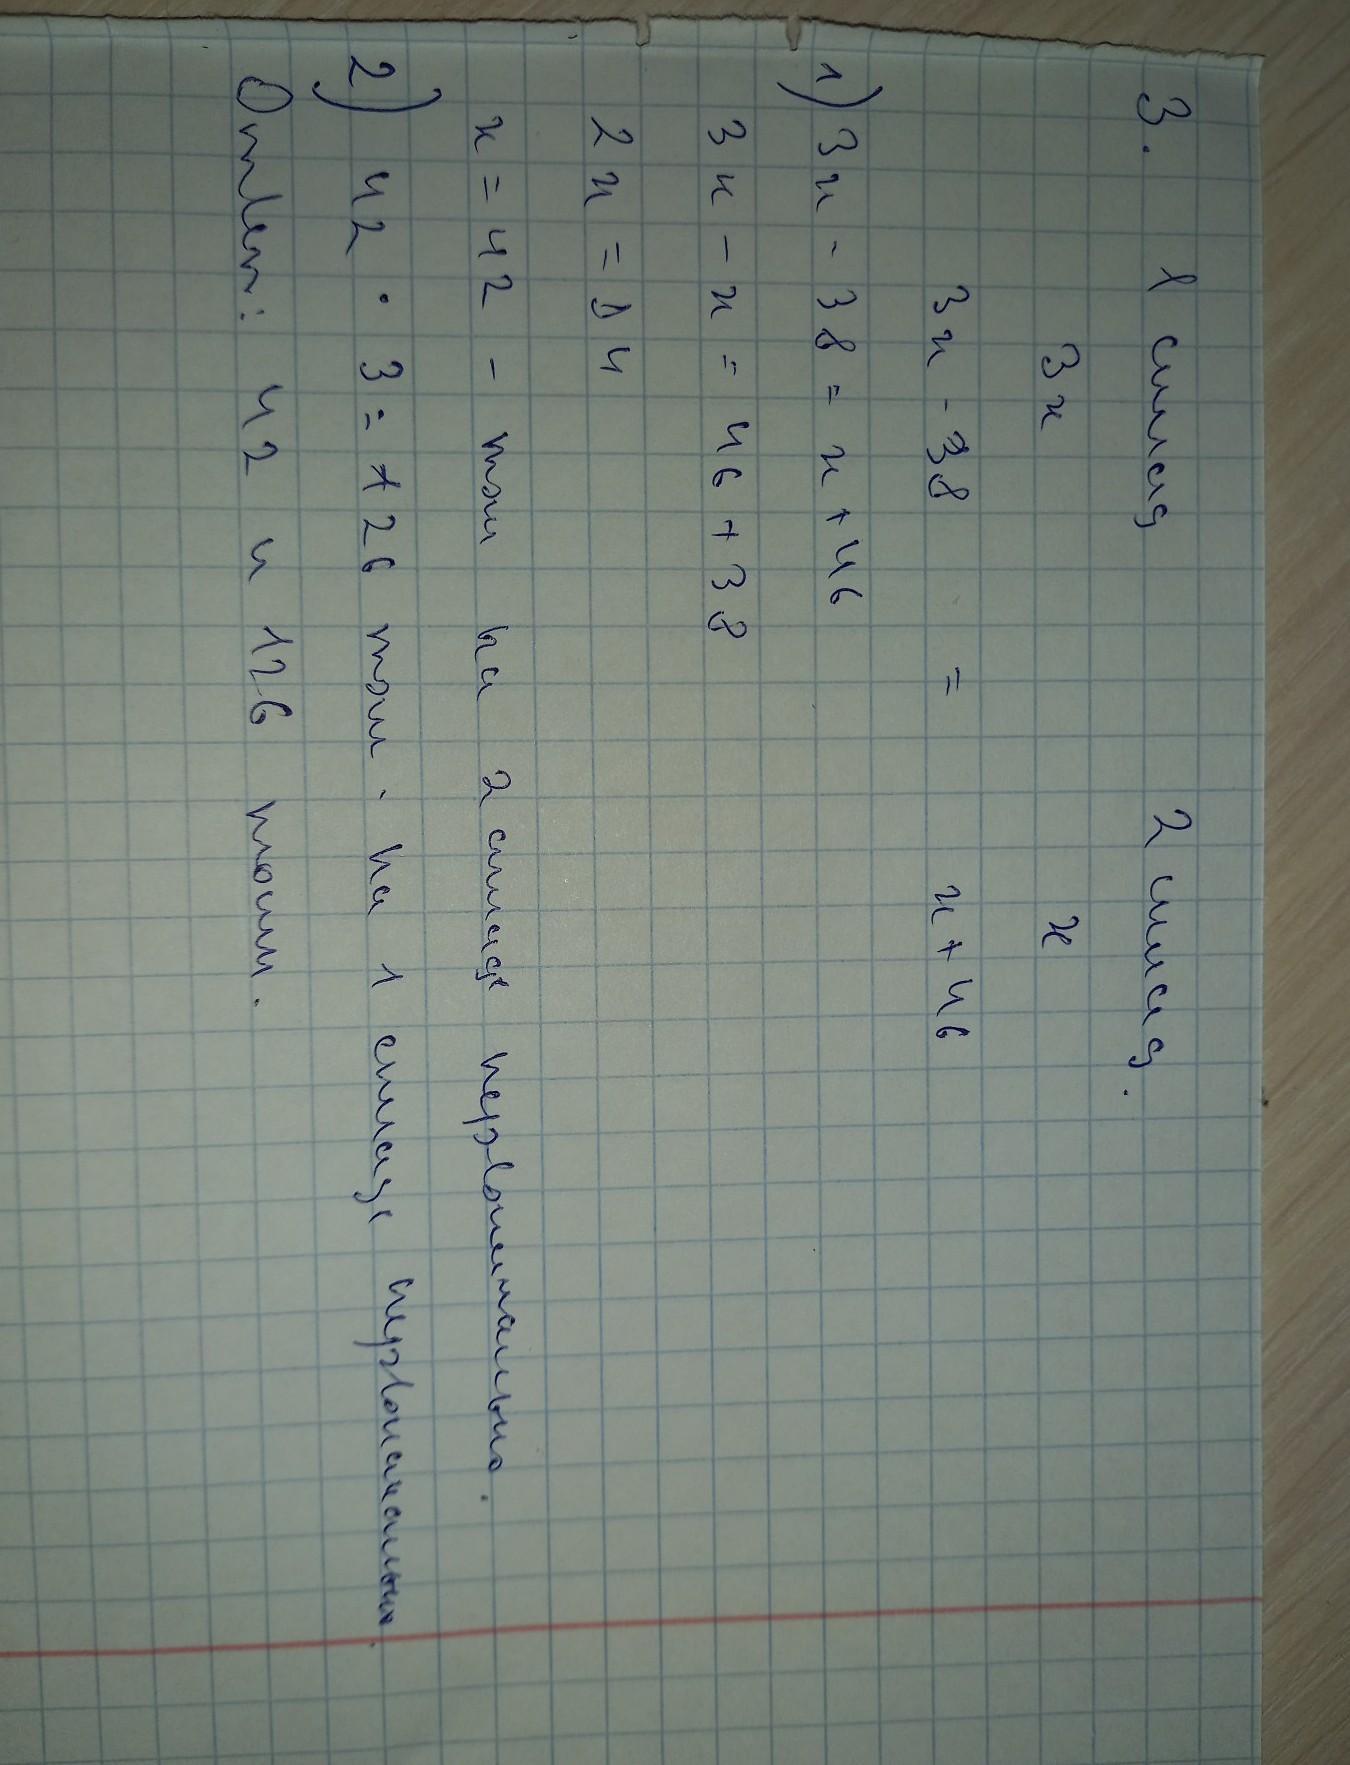 3. 1 склад 2 склад.
3x x
3x - 38 = x + 46
1) 3x - 38 = x + 46
3x - x = 46 + 38
2x = 84
x = 42 - тон на 2 складе первоначально.
2) 42 · 3 = 126 тонн. на 1 складе первоначально.
Ответ: 42 и 126 тонн.